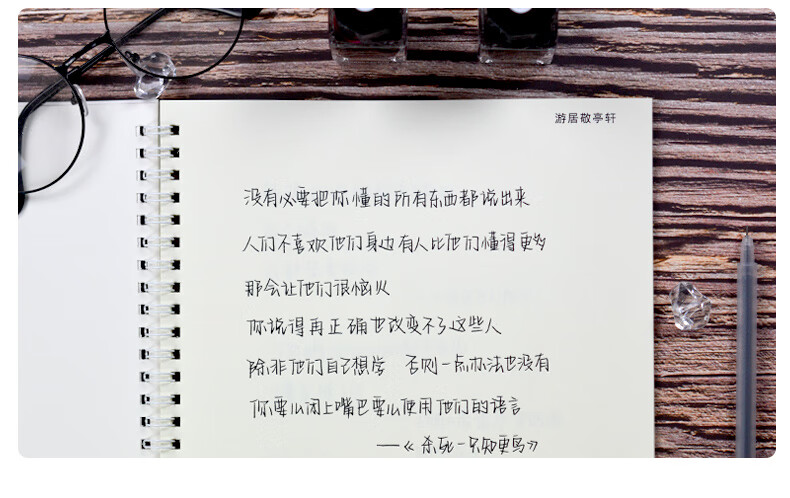 游居敬亭轩
没有必要把你懂的所有东西都说出来
人们不喜欢他们身边有人比他们懂得更多
那会让他们很恼火
你说得再正确也改变不了这些人
除非他们自己想学 否则一点办法也没有
你要么闭上嘴巴要么使用他们的语言
——《杀死一只知更鸟》